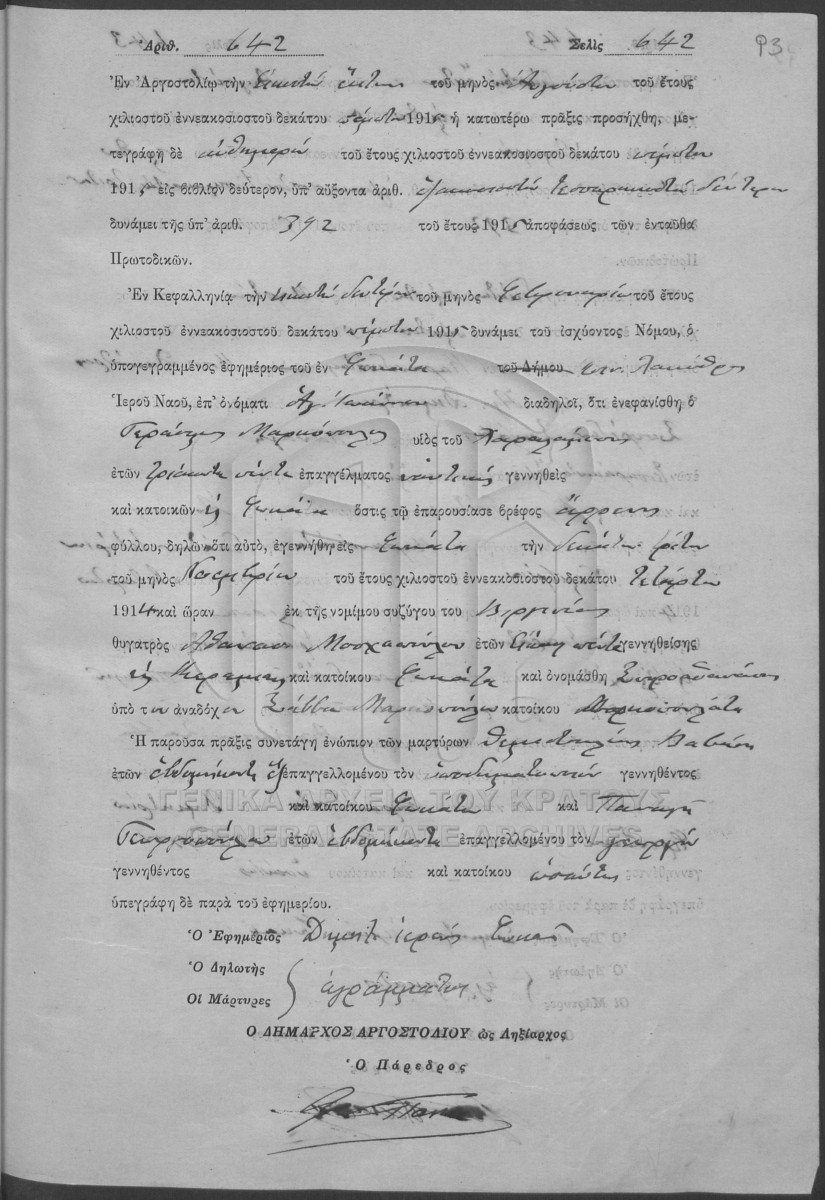 Ἀριθ. 642 Σελὶς 642 93
Ἐν Ἀργοστολίῳ τὴν εἰκοστὴν ἕκτην τοῦ μηνὸς Αὐγούστου τοῦ ἔτους
χιλιοστοῦ ἐννεακοσιοστοῦ δεκάτου πέμπτου 1915 ἡ κατωτέρω πρᾶξις προσήχθη, με-
τεγράφη δὲ αὐθημερὸν τοῦ ἔτους χιλιοστοῦ ἐννεακοσιοστοῦ δεκάτου πέμπτου
1915 εἰς βιβλίον δεύτερον, ὑπ' αὔξοντα ἀριθ. ἑξακοσιοστὸν τεσσαρακοστὸν δεύτερον
δυνάμει τῆς ὑπ' ἀριθ. 392 τοῦ ἔτους 1915 ἀποφάσεως τῶν ἐνταῦθα
Πρωτοδικῶν.
Ἐν Κεφαλληνίᾳ τὴν εἰκοστὴν δευτέραν τοῦ μηνὸς Φεβρουαρίου τοῦ ἔτους
χιλιοστοῦ ἐννεακοσιοστοῦ δεκάτου πέμπτου 1915 δυνάμει τοῦ ἰσχύοντος Νόμου, ὁ
ὑπογεγραμμένος ἐφημέριος τοῦ ἐν Φωκάτα τοῦ Δήμου
Ἱεροῦ Ναοῦ, ἐπ' ὀνόματι Ἁγ. Ἰωάννου διαδηλοῖ, ὅτι ἐνεφανίσθη ὁ
Γεράσιμος Μαρκόπουλος υἱὸς τοῦ Χαραλάμπους
ἐτῶν τριάκοντα πέντε ἐπαγγέλματος ναυτικὸς γεννηθεὶς
καὶ κατοικῶν εἰς Φωκάτα ὅστις τῷ ἐπαρουσίασε βρέφος ἄρρενος
φύλλου, δηλῶν ὅτι αὐτό, ἐγεννήθη εἰς Φωκάτα τὴν δεκάτην τρίτην
τοῦ μηνὸς Νοεμβρίου τοῦ ἔτους χιλιοστοῦ ἐννεακοσιοστοῦ δεκάτου τετάρτου
1914 καὶ ὥραν ἐκ τῆς νομίμου συζύγου του Βεργινίας
θυγατρὸς Ἀθανασίου Μοσχοπούλου ἐτῶν εἴκοσι πέντε γεννηθείσης
εἰς Κεραμειὲς καὶ κατοίκου Φωκάτα καὶ ὀνομάσθη Σπυροαθανάσης
ὑπὸ του ἀναδόχου Σάββα Μαρκοπούλου κατοίκου Μαρκοπουλάτα
Ἡ παροῦσα πρᾶξις συνετάγη ἐνώπιον τῶν μαρτύρων Θεμιστοκλέους
ἐτῶν ἑβδομήκοντα ἓξ ἐπαγγελλομένου τὸν ὑποδηματοποιὸν γεννηθέντος
καὶ κατοίκου Φωκάτα καὶ Παναγῆ
Γεωργοπούλου ἐτῶν ἑβδομήκοντα ἐπαγγελλομένου τὸν γεωργὸν
γεννηθέντος καὶ κατοίκου ὡσαύτως
ὑπεγράφη δὲ παρὰ τοῦ ἐφημερίου.
Ὁ Ἐφημέριος ἱερεὺς
Ὁ Δηλωτὴς
Οἱ Μάρτυρες ἀγράμματοι
Ο ΔΗΜΑΡΧΟΣ ΑΡΓΟΣΤΟΛΙΟΥ ὡς Ληξίαρχος
Ὁ Πάρεδρος
ΓΕΝΙΚΑ ΑΡΧΕΙΑ ΤΟΥ ΚΡΑΤΟΥΣ
GENERAL STATE ARCHIVES